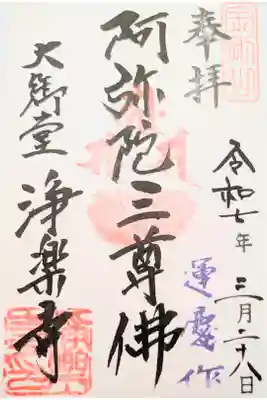 奉拝
令和七年 三月二十八日
運慶作
阿弥陀三尊佛
大御堂 浄楽寺